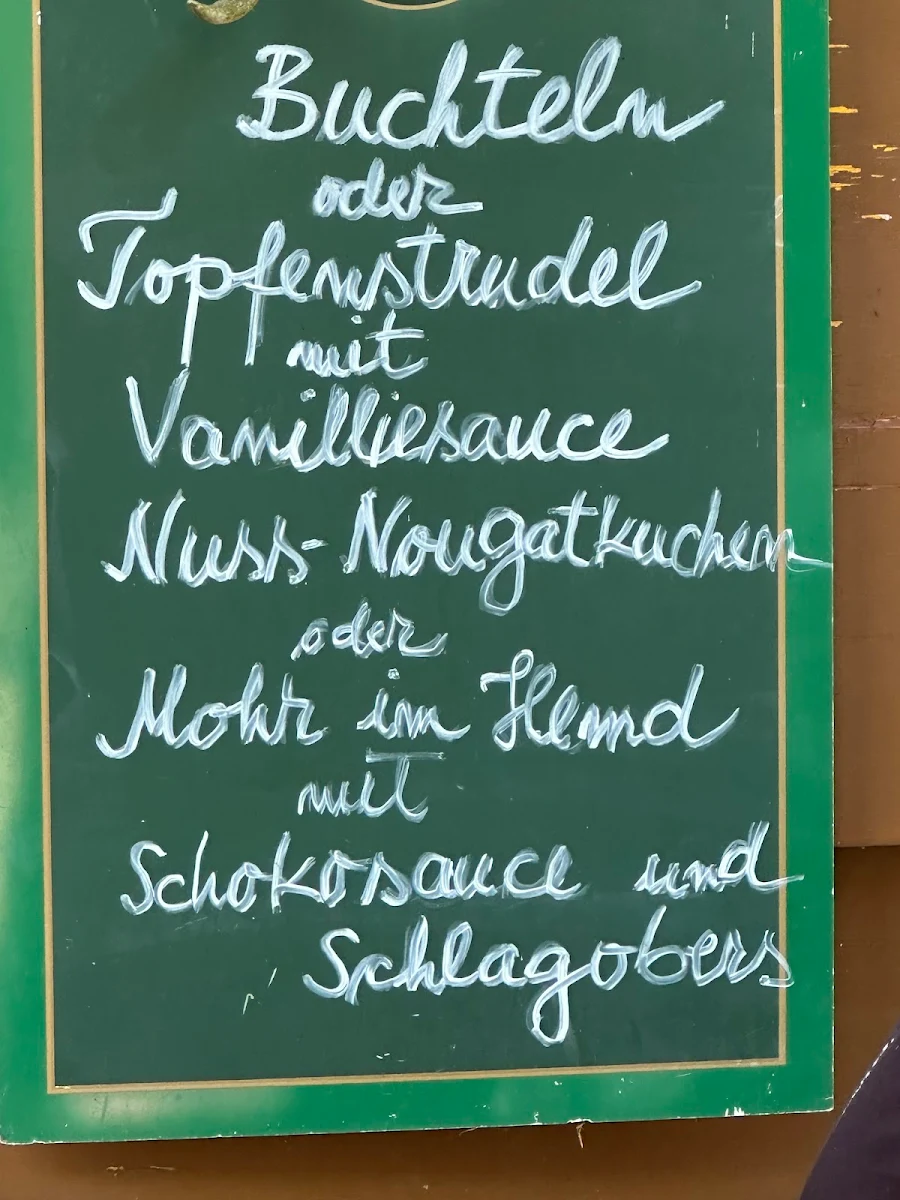 Buchteln
oder
Topfenstrudel
mit
Vanilliesauce
Nuss-Nougatkuchen
oder
Mohr im Hemd
mit
Schokosauce und
Schlagobers